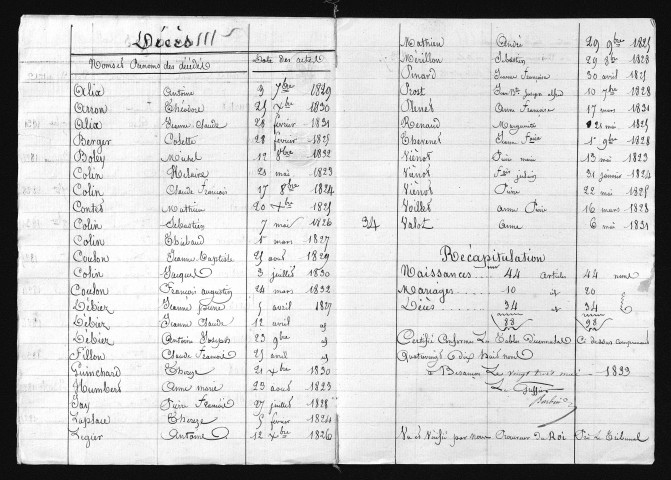 Décès
Noms et Prénoms des décédés Date des actes
Alix Antoine 3 7bre 1829
Arzon Théodore 21 Xbre 1830
Alix Jeanne Claude 28 février 1831
Berger Colette 28 février 1825
Boley 12 8bre 1832
Colin Hilaire 21 mai 1823
Colin Claude François 17 8bre 1824
Contet Mathieu 20 Xbre 1825
Colin Sébastien 7 mai 1826
Colin Thiebaud 5 mars 1827
Coulon Jeanne Baptiste 21 aout 1829
Colin Jacques 3 juillet 1830
Coulon François augustin 24 mars 1832
Débier Jeanne 5 avril 1827
Débier Jeanne Claude 12 avril id
Débier Antoine Joseph 23 9bre id
Fillon Claude François 21 avril id
Guinchard Thereze 21 Xbre 1830
Humbert Anne marie 23 aout 1823
Jay Pierre François 27 juillet 1828
Laplace Thereze 5 février 1824
Legier Antoine 12 Xbre 1826
Mathieu André 29 9bre 1825
Mérillon Sébastien 29 8bre 1828
Pinard Jeanne Françoise 30 avril 1825
Prost Jean Bte Joseph 10 7bre 1828
Anne Françoise 17 mars 1831
Renaud Marguerite 21 mai 1825
Thevenet Jeanne Fse 1er 9bre 1828
Viénot Pierre 13 mai 1823
Viénot Fois julien 31 janvier 1824
Viénot Pierre 22 mai 1825
Voillet anne 16 mars 1828
34 Valot anne 6 mai 1831
Récapitulation
Naissances 44 articles 44 noms
Mariages 10 id 20
Décès 34 id 34
88 98
Certifié Conforme La Table Décennale Ci dessus comprenant
quatrevingt dix huit noms
à Besançon Le vingt trois mai 1833
Le Greffier
Vu et Vérifié par nous Procureur du Roi Près Le Tribunal